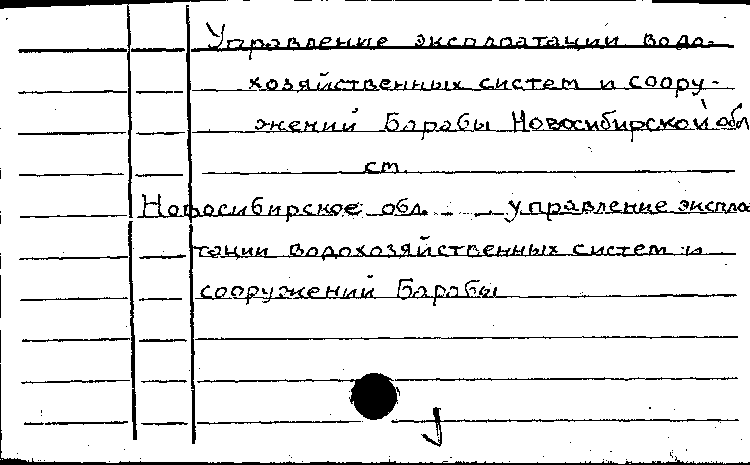 Управление эксплоатации водо-
хозяйственных систем и соору-
жений Барабы Новосибирской обл
ст.
Новосибирское обл. управление экспло
тации водохозяйственных систем и
сооружений Барабы